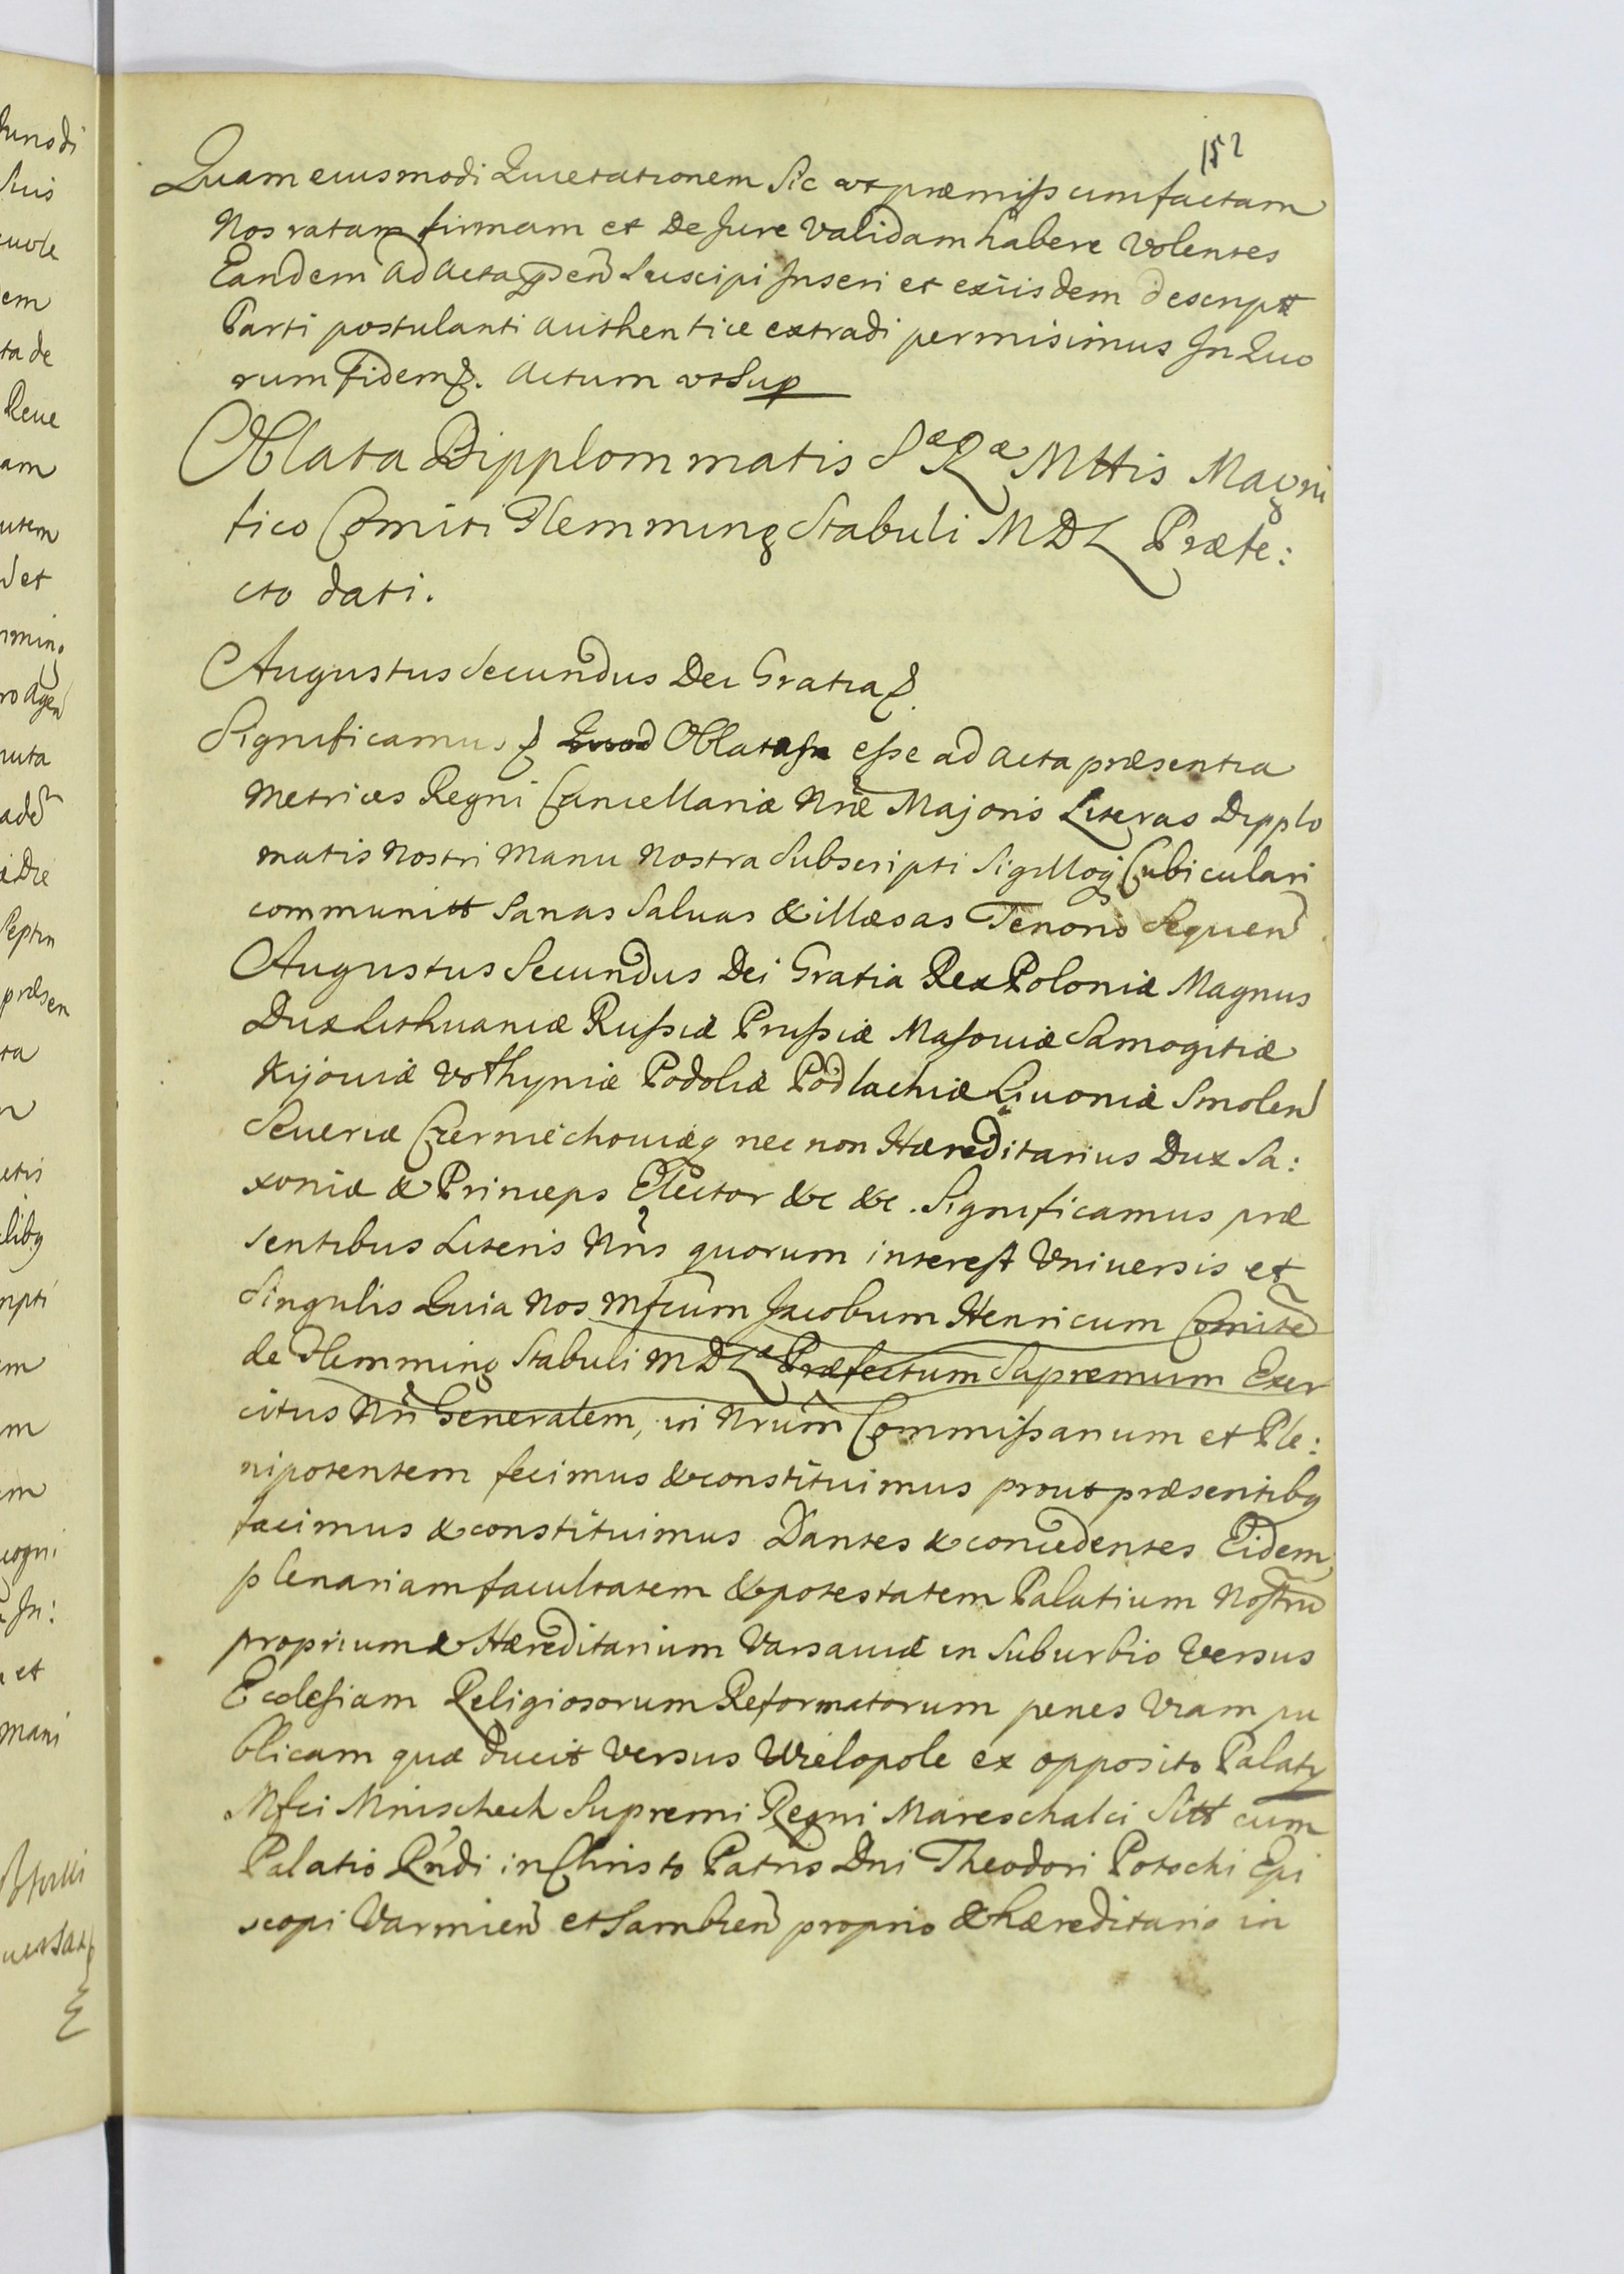 152
Quam eiusmodi Quietationem Sic ut præmiss cum factam
Nos ratam firmam et De Jure Validam habere Volentes
Eandem ad Acta Suscipi Inseri et exiisdem descriptt
Parti postulanti authentice extradi permisimus In Quo
rum Fidem. Actum ut Sup
Oblata Dipplommatis Sæ Ræ Mttis Magni
fico Comiti Flemming Stabuli MDL Præfe:
cto dati.
Augustus Secundus Dei Gratia
Significamus Quod Oblatas esse ad acta præsentia
Metrices Regni Cancellariæ Nræ Majoris Literas Dipplo
matis Nostri Manu Nostra Subscripti Sigilloq Cubiculari
communitt Sanas Saluas & illæsas Tenoris Sequen
Augustus Secundus Dei Gratia Rex Poloniæ Magnus
Dux Lithuaniæ Russiæ Prussiæ Masouiæ Samogitiæ
Kijouiæ Volhyniæ Podoliæ Podlachiæ Liuoniæ Smolen
Seueriæ Czerniechouiæq nec non Hæreditarius Dux Sa:
xoniæ & Princeps Elector &c &c. Significamus præ
sentibus Literis Nris quorum interest Vniuersis et
Singulis Quia Nos Mfcum Jacobum Henricum Comite
de Flemming Stabuli MDLæ Præfectum Supremum Exer
citus Nri Generalem, in Nrum Commissarium et Ple:
nipotentem fecimus & constituimus prout præsentibq
facimus & constituimus Dantes & concedentes Eidem
plenariam facultatem & potestatem Palatium Nostru
proprium & Hæreditarium Varsauiæ in Suburbio Versus
Ecclesiam Religiosorum Reformatorum penes Viam pu
blicam quæ ducit versus Wielopole ex opposito Palaty
Mfci Mnischech Supremi Regni Mareschalci Sitt cum
Palatio Rndi in Christo Patris Dni Theodori Potocki Epi
scopi Varmien et Sambien proprio & hæreditario in